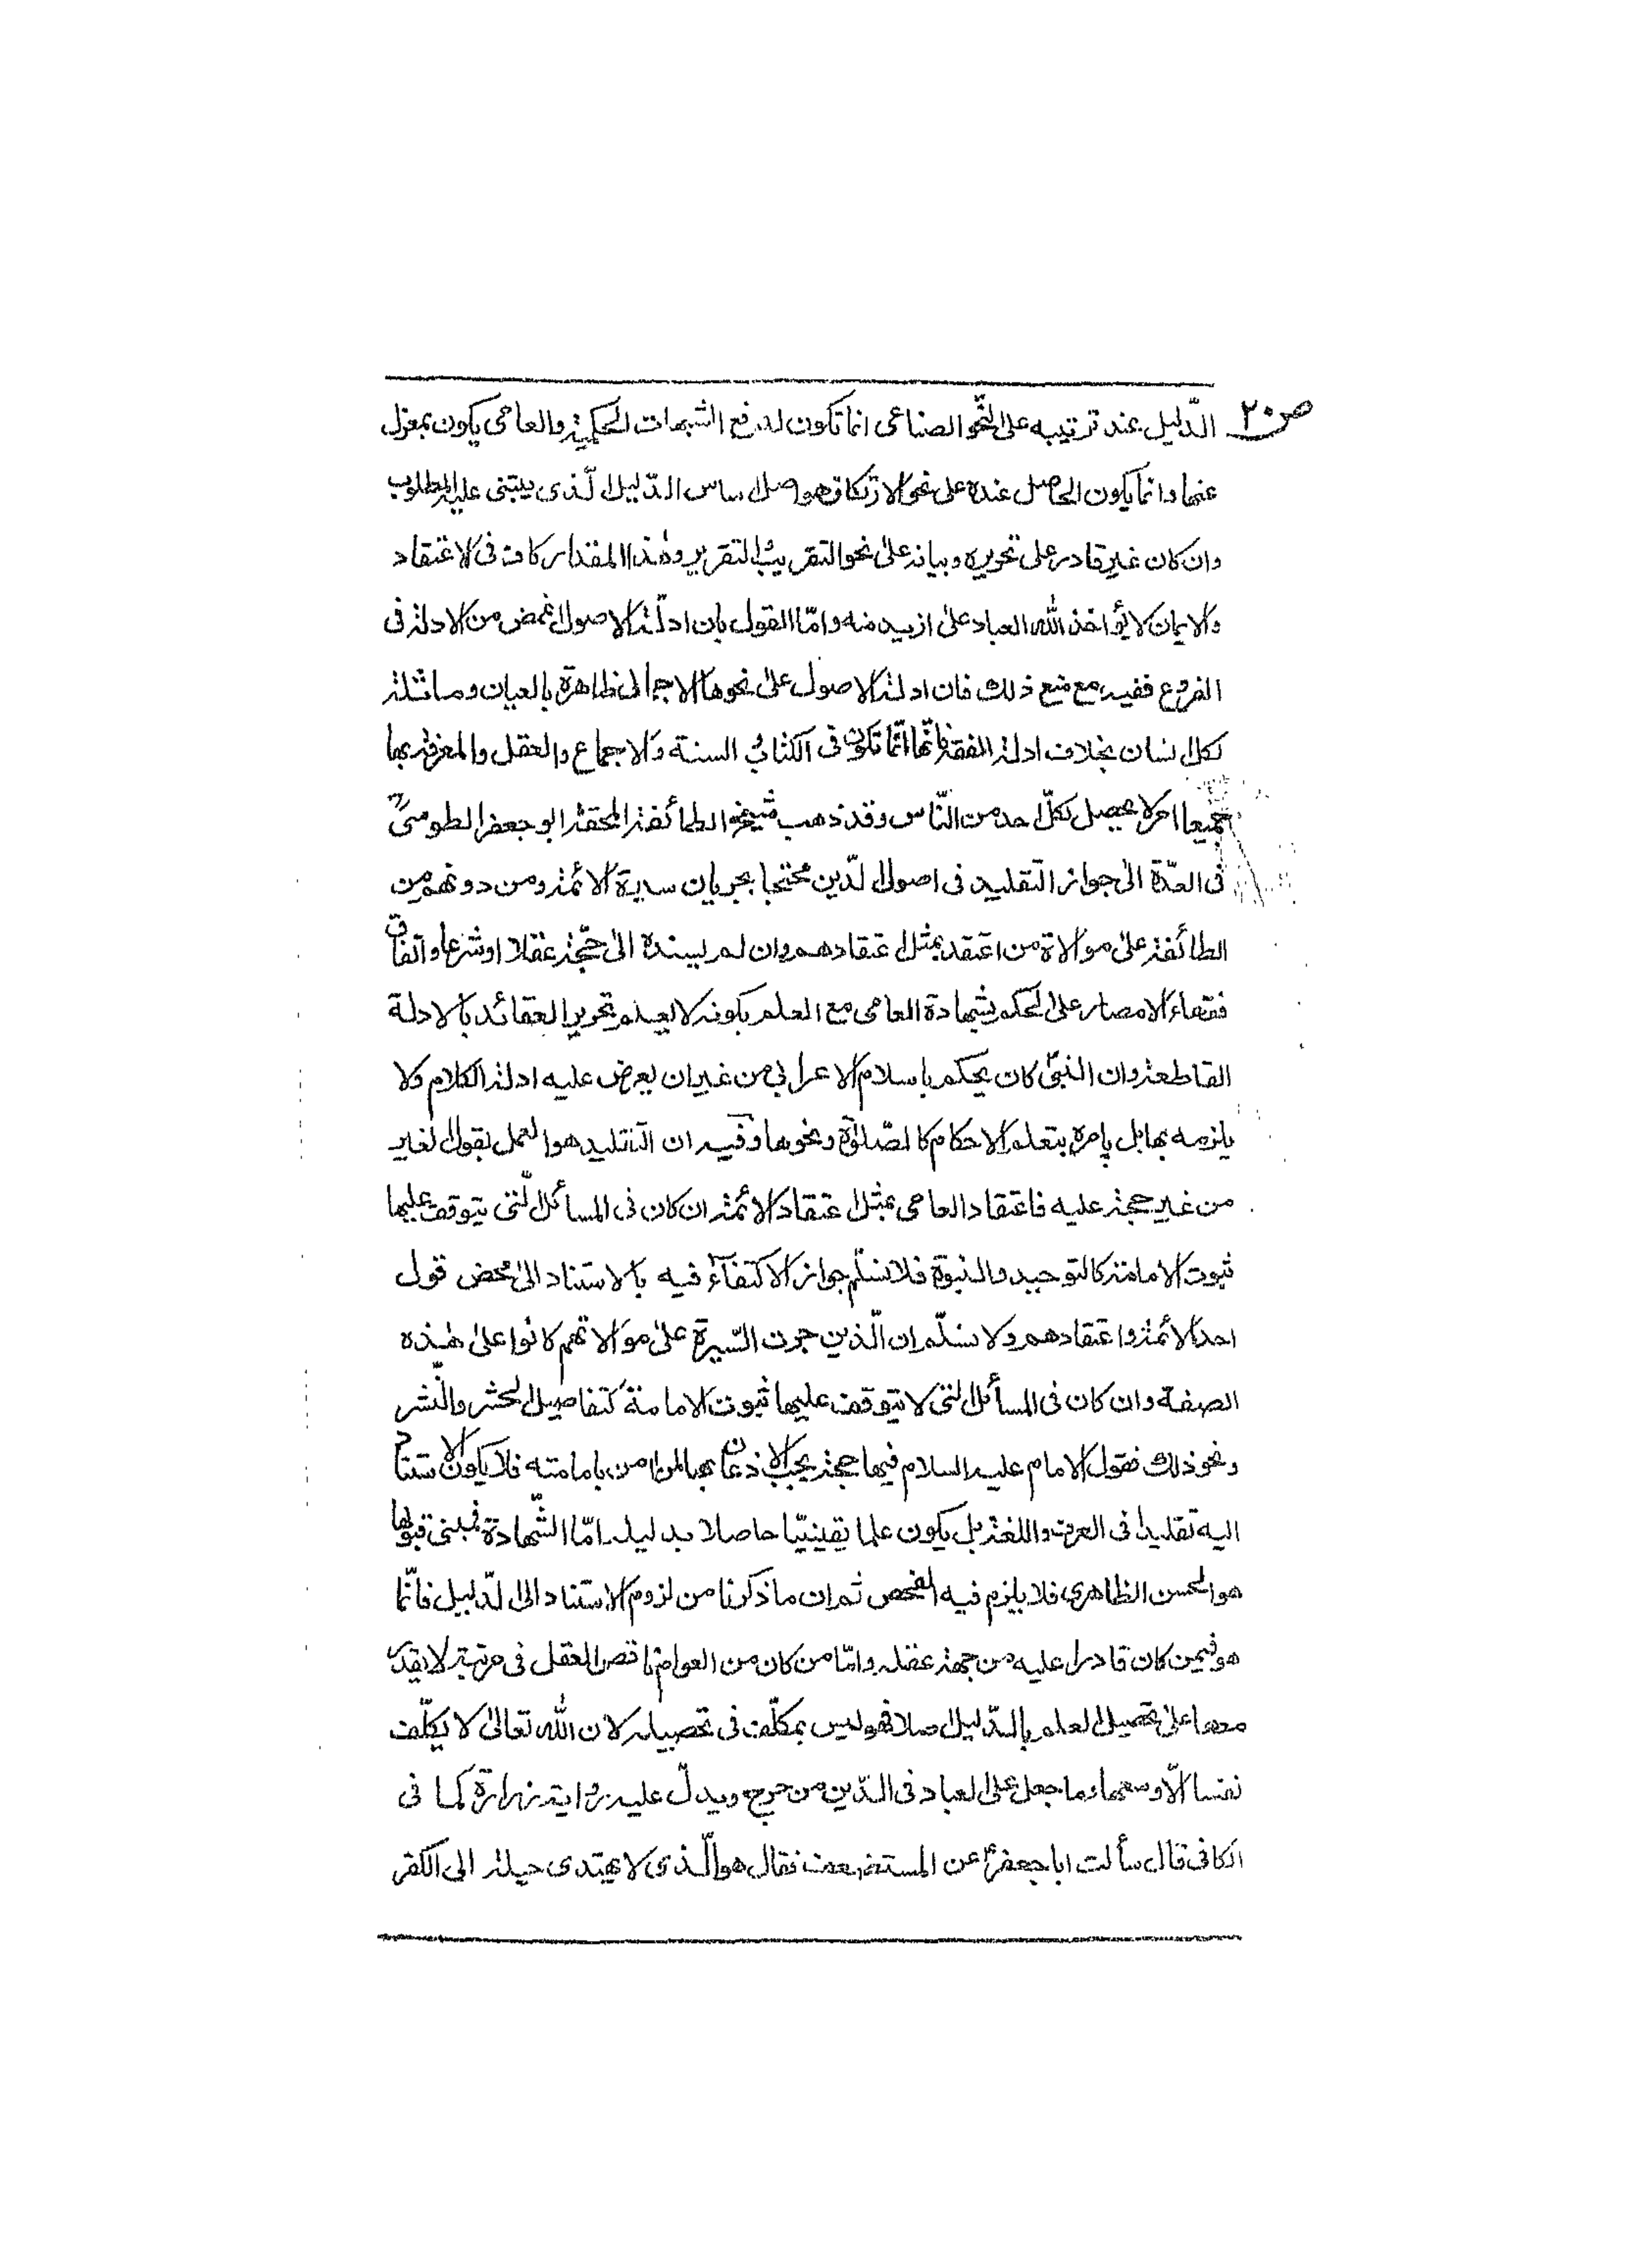 ص ٢٠
الدّليل عند ترتيبه على النّحو الصناعى انما تكون لدفع الشبهات الحكمية والعامى يكون بمعزل
عنها وانما يكون الحاصل عنده على نحو الارتكاز وهو اصل اساس الدّليل الّذى يبتنى عليه المطلوب
وان كان غير قادر على تحريره وبيانه على نحو التقريب والتقرير وهذا المقدار كاف فى الاعتقاد
والايمان لا يؤاخذ الله العباد على ازيد منه وامّا القول بان ادلّة الاصول اغمض من الادلة فى
الفروع ففيه مع منع ذلك فان ادلة الاصول على نحوها الاجمالى ظاهرة بالعيان وماثلة
لكل انسان بخلاف ادلة الفقه فانّها انّما تكون فى الكتاب و السنة والاجماع والعقل والمعرفة بها
جميعا امر لا يحصل لكلّ احد من النّاس وقد ذهب شيخ الطائفة المحقة ابو جعفر الطوسىّ
فى العدّة الى جواز التقليد فى اصول الدّين محتجا بجريان سيرة الائمة ومن دونهم من
الطائفة على موالاة من اعتقد بمثل اعتقادهم وان لم يسنده الى حجّة عقلا او شرعا واتفاق
فقهاء الامصار على الحكم بشهادة العامى مع العلم بكونه لا يعلم تحرير العقائد بالادلة
القاطعة وان النبىّ كان يحكم باسلام الاعرابى من غير ان يعرض عليه ادلة الكلام ولا
يلزمه بها بل يامره بتعلم الاحكام كالصّلوٰة ونحوها وفيه ان التقليد هو العمل بقول الغير
من غير حجة عليه فاعتقاد العامى بمثل اعتقاد الائمة ان كان فى المسائل الّتى يتوقف عليها
ثبوت الامامة كالتوحيد والنبوة فلا نسلّم جواز الاكتفاء فيه بالاستناد الى محض قول
احد الائمة واعتقادهم ولا نسلّم ان الّذين جرت السّيرة على موالاتهم كانوا على هٰذه
الصفة وان كان فى المسائل التى لا يتوقف عليها ثبوت الامامة كتفاصيل الحشر والنّشر
ونحو ذلك فقول الامام عليه السلام فيها حجة يجب الاذعان بها لمن امن بامامته فلا يكون الاستناد
اليه تقليدا فى العرف واللغة بل يكون علما يقينيّا حاصلا بدليل امّا الشّهادة فمبنى قبولها
هو الحسن الظاهرى فلا يلزم فيه الفحص ثم ان ما ذكرنا من لزوم الاستناد الى الدّليل فانّما
هو فيمن كان قادرا عليه من جهة عقله وامّا من كان من العوام ناقص العقل فى مرتبة لا يقدر
معها على تحصيل العلم بالدّليل اصلا فهو ليس بمكلّف فى تحصيله لان الله تعالىٰ لا يكلّف
نفسا الّا وسعها وما جعل على العباد فى الدّين من حرج ويدلّ عليه رواية زرارة كما فى
الكافى قال سألت ابا جعفرؑ عن المستضعف فقال هو الّذى لا يهتدى حيلة الى الكفر